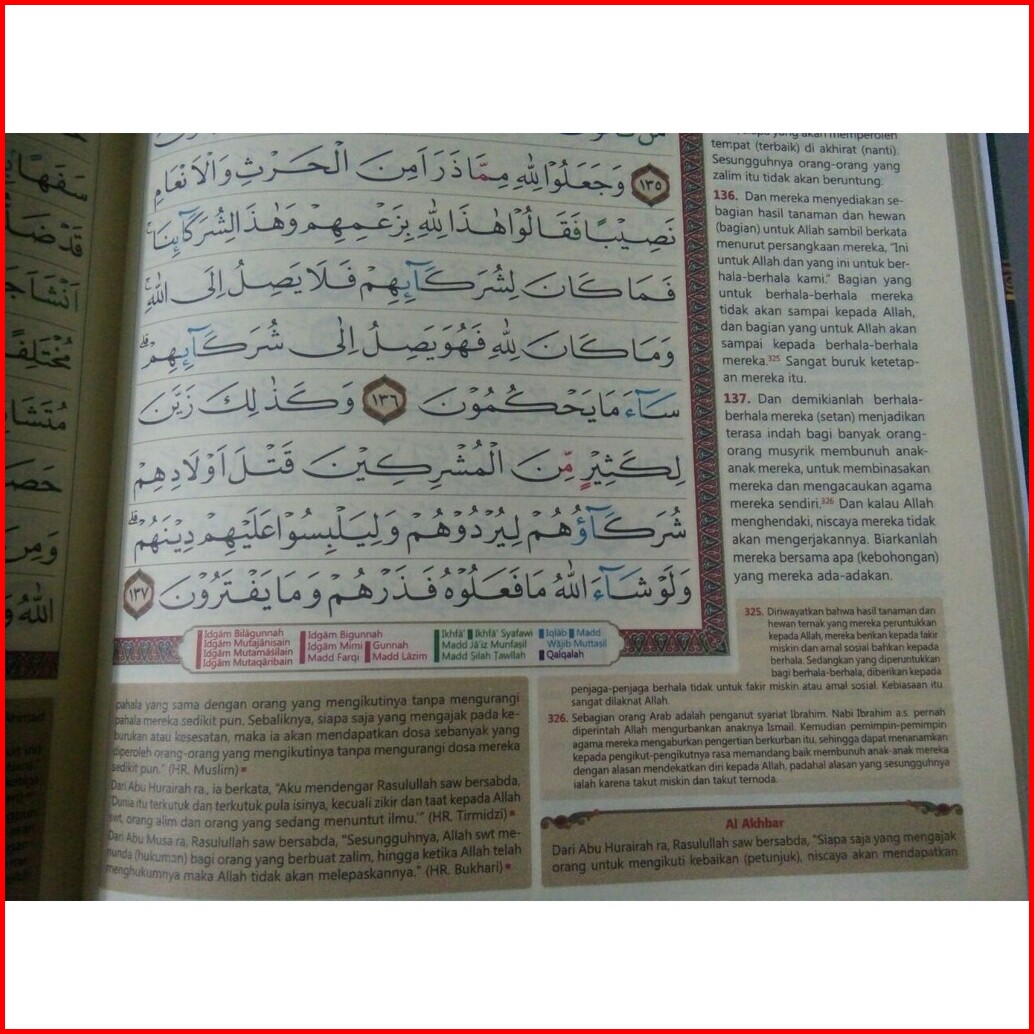 ١٣٥ وَجَعَلُوْا لِلّٰهِ مِمَّا ذَرَاَ مِنَ الْحَرْثِ وَالْاَنْعَامِ
نَصِيْبًا فَقَالُوْا هٰذَا لِلّٰهِ بِزَعْمِهِمْ وَهٰذَا لِشُرَكَاۤىِٕنَاۚ
فَمَا كَانَ لِشُرَكَاۤىِٕهِمْ فَلَا يَصِلُ اِلَى اللّٰهِ ۚ
وَمَا كَانَ لِلّٰهِ فَهُوَ يَصِلُ اِلٰى شُرَكَاۤىِٕهِمْۗ
سَاۤءَ مَا يَحْكُمُوْنَ ١٣٦ وَكَذٰلِكَ زَيَّنَ
لِكَثِيْرٍ مِّنَ الْمُشْرِكِيْنَ قَتْلَ اَوْلَادِهِمْ
شُرَكَاۤؤُهُمْ لِيُرْدُوْهُمْ وَلِيَلْبِسُوْا عَلَيْهِمْ دِيْنَهُمْۗ
وَلَوْ شَاۤءَ اللّٰهُ مَا فَعَلُوْهُ فَذَرْهُمْ وَمَا يَفْتَرُوْنَ ١٣٧
akan memperoleh
tempat (terbaik) di akhirat (nanti).
Sesungguhnya orang-orang yang
zalim itu tidak akan beruntung.
136. Dan mereka menyediakan se-
bagian hasil tanaman dan hewan
(bagian) untuk Allah sambil berkata
menurut persangkaan mereka, "Ini
untuk Allah dan yang ini untuk ber-
hala-berhala kami." Bagian yang
untuk berhala-berhala mereka
tidak akan sampai kepada Allah,
dan bagian yang untuk Allah akan
sampai kepada berhala-berhala
mereka.325 Sangat buruk ketetap-
an mereka itu.
137. Dan demikianlah berhala-
berhala mereka (setan) menjadikan
terasa indah bagi banyak orang-
orang musyrik membunuh anak-
anak mereka, untuk membinasakan
mereka dan mengacaukan agama
mereka sendiri.326 Dan kalau Allah
menghendaki, niscaya mereka tidak
akan mengerjakannya. Biarkanlah
mereka bersama apa (kebohongan)
yang mereka ada-adakan.
Idgām Bilāgunnah
Idgām Mutajānisain
Idgām Mutamāṡilain
Idgām Mutaqāribain
Idgām Bigunnah
Idgām Mimi Gunnah
Madd Farqi Madd Lāzim
Ikhfā' Ikhfā' Syafawi
Madd Jā'iz Munfaṣil
Madd Ṣilah Ṭawīlah
Iqlāb Madd
Wājib Muttaṣil
Qalqalah
325. Diriwayatkan bahwa hasil tanaman dan
hewan ternak yang mereka peruntukkan
kepada Allah, mereka berikan kepada fakir
miskin dan amal sosial bahkan kepada
berhala. Sedangkan yang diperuntukkan
bagi berhala-berhala, diberikan kepada
penjaga-penjaga berhala tidak untuk fakir miskin atau amal sosial. Kebiasaan itu
sangat dilaknat Allah.
326. Sebagian orang Arab adalah penganut syariat Ibrahim. Nabi Ibrahim a.s. pernah
diperintah Allah mengurbankan anaknya Ismail. Kemudian pemimpin-pemimpin
agama mereka mengaburkan pengertian berkurban itu, sehingga dapat menanamkan
kepada pengikut-pengikutnya rasa memandang baik membunuh anak-anak mereka
dengan alasan mendekatkan diri kepada Allah, padahal alasan yang sesungguhnya
ialah karena takut miskin dan takut ternoda.
Al Akhbar
Dari Abu Hurairah ra, Rasulullah saw bersabda, "Siapa saja yang mengajak
orang untuk mengikuti kebaikan (petunjuk), niscaya akan mendapatkan
pahala yang sama dengan orang yang mengikutinya tanpa mengurangi
pahala mereka sedikit pun. Sebaliknya, siapa saja yang mengajak pada ke-
burukan atau kesesatan, maka ia akan mendapatkan dosa sebanyak yang
diperoleh orang-orang yang mengikutinya tanpa mengurangi dosa mereka
sedikit pun." (HR. Muslim)
Dari Abu Hurairah ra., ia berkata, "Aku mendengar Rasulullah saw bersabda,
'Dunia itu terkutuk dan terkutuk pula isinya, kecuali zikir dan taat kepada Allah
swt, orang alim dan orang yang sedang menuntut ilmu.'" (HR. Tirmidzi)
Dari Abu Musa ra, Rasulullah saw bersabda, "Sesungguhnya, Allah swt me-
nunda (hukuman) bagi orang yang berbuat zalim, hingga ketika Allah telah
menghukumnya maka Allah tidak akan melepaskannya." (HR. Bukhari)